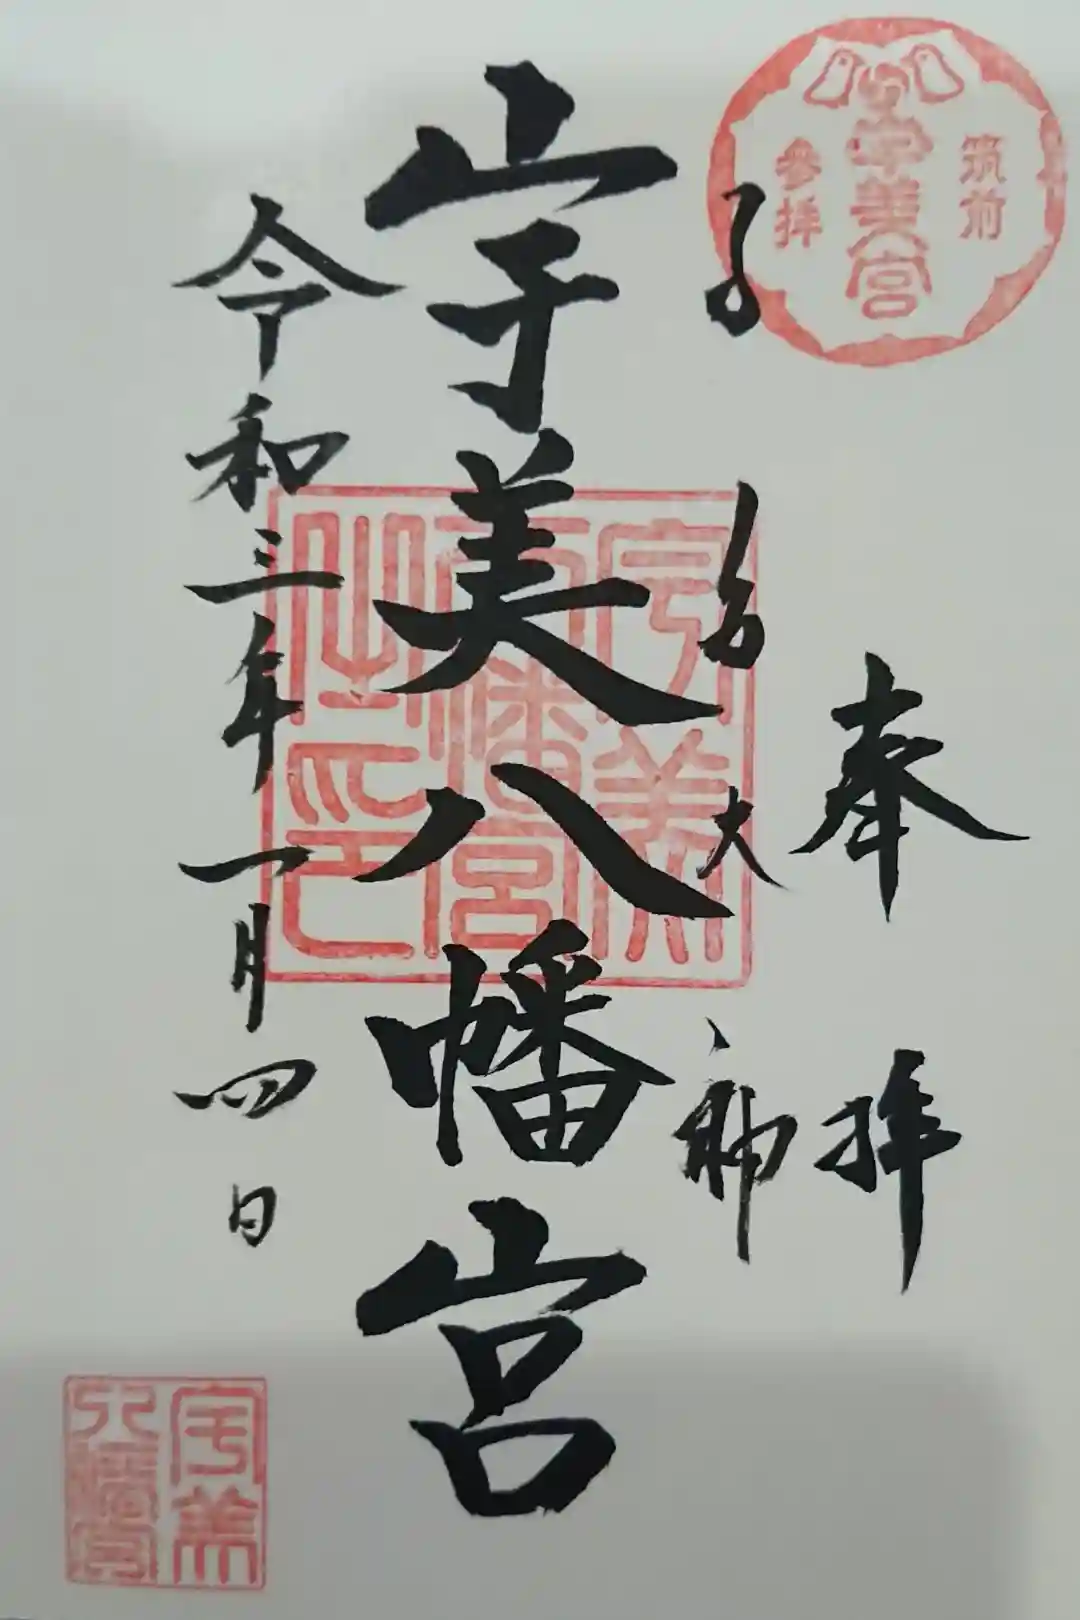 筑前
宇美宮
参拝
奉拝
子安大神
宇美八幡宮
令和三年一月四日
宇美八幡宮之印
宇美八幡宮